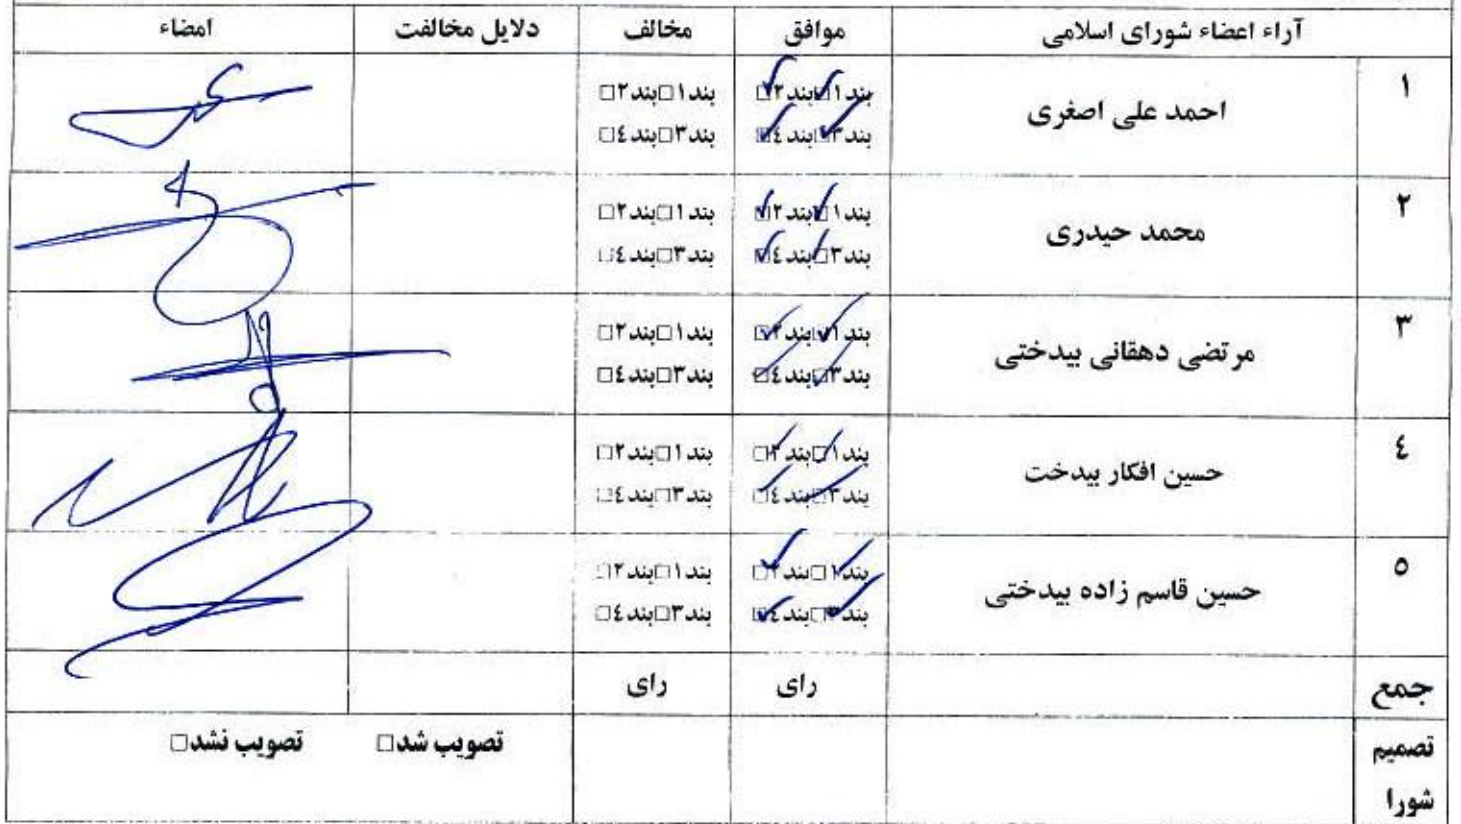 آراء اعضاء شورای اسلامی موافق مخالف دلایل مخالفت امضاء
۱ احمد علی اصغری بند۱□بند۲□ بند۱□بند۲□
بند۳□بند٤□ بند۳□بند٤□
۲ محمد حیدری بند۱□بند۲□ بند۱□بند۲□
بند۳□بند٤□ بند۳□بند٤□
۳ مرتضی دهقانی بیدختی بند۱□بند۲□ بند۱□بند۲□
بند۳□بند٤□ بند۳□بند٤□
٤ حسین افکار بیدخت بند۱□بند۲□ بند۱□بند۲□
بند۳□بند٤□ بند۳□بند٤□
٥ حسین قاسم زاده بیدختی بند۱□بند۲□ بند۱□بند۲□
بند۳□بند٤□ بند۳□بند٤□
جمع رای رای
تصمیم تصویب شد□ تصویب نشد□
شورا